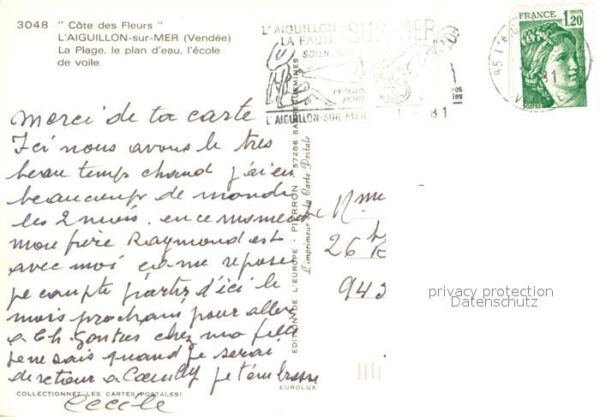 3048 " Côte des Fleurs "
L'AIGUILLON-sur-MER (Vendée)
La Plage, le plan d'eau, l'école
de voile
Merci de ta carte
Ici nous avons le très
beau temps chaud j'ai eu
beaucoup de monde
les 2 mois. en ce moment
mon frère Raymond est
avec moi ça me repose
je compte partir d'ici le
mois prochain pour aller
a Ch. Gontier chez ma fille
je ne sais quand je serai
de retour a je t'embrasse
Cecile
COLLECTIONNEZ LES CARTES POSTALES!
EDITION DE L'EUROPE - PIERRON - 57206 SARREGUEMINES
L'imprimeur de la Carte Postale
EUROLUX
L'AIGUILLON SUR-MER
LA FAUTE
SOLEIL
PORT
L'AIGUILLON-SUR-MER
81
FRANCE
1,20
Mme
26
943
privacy protection
Datenschutz